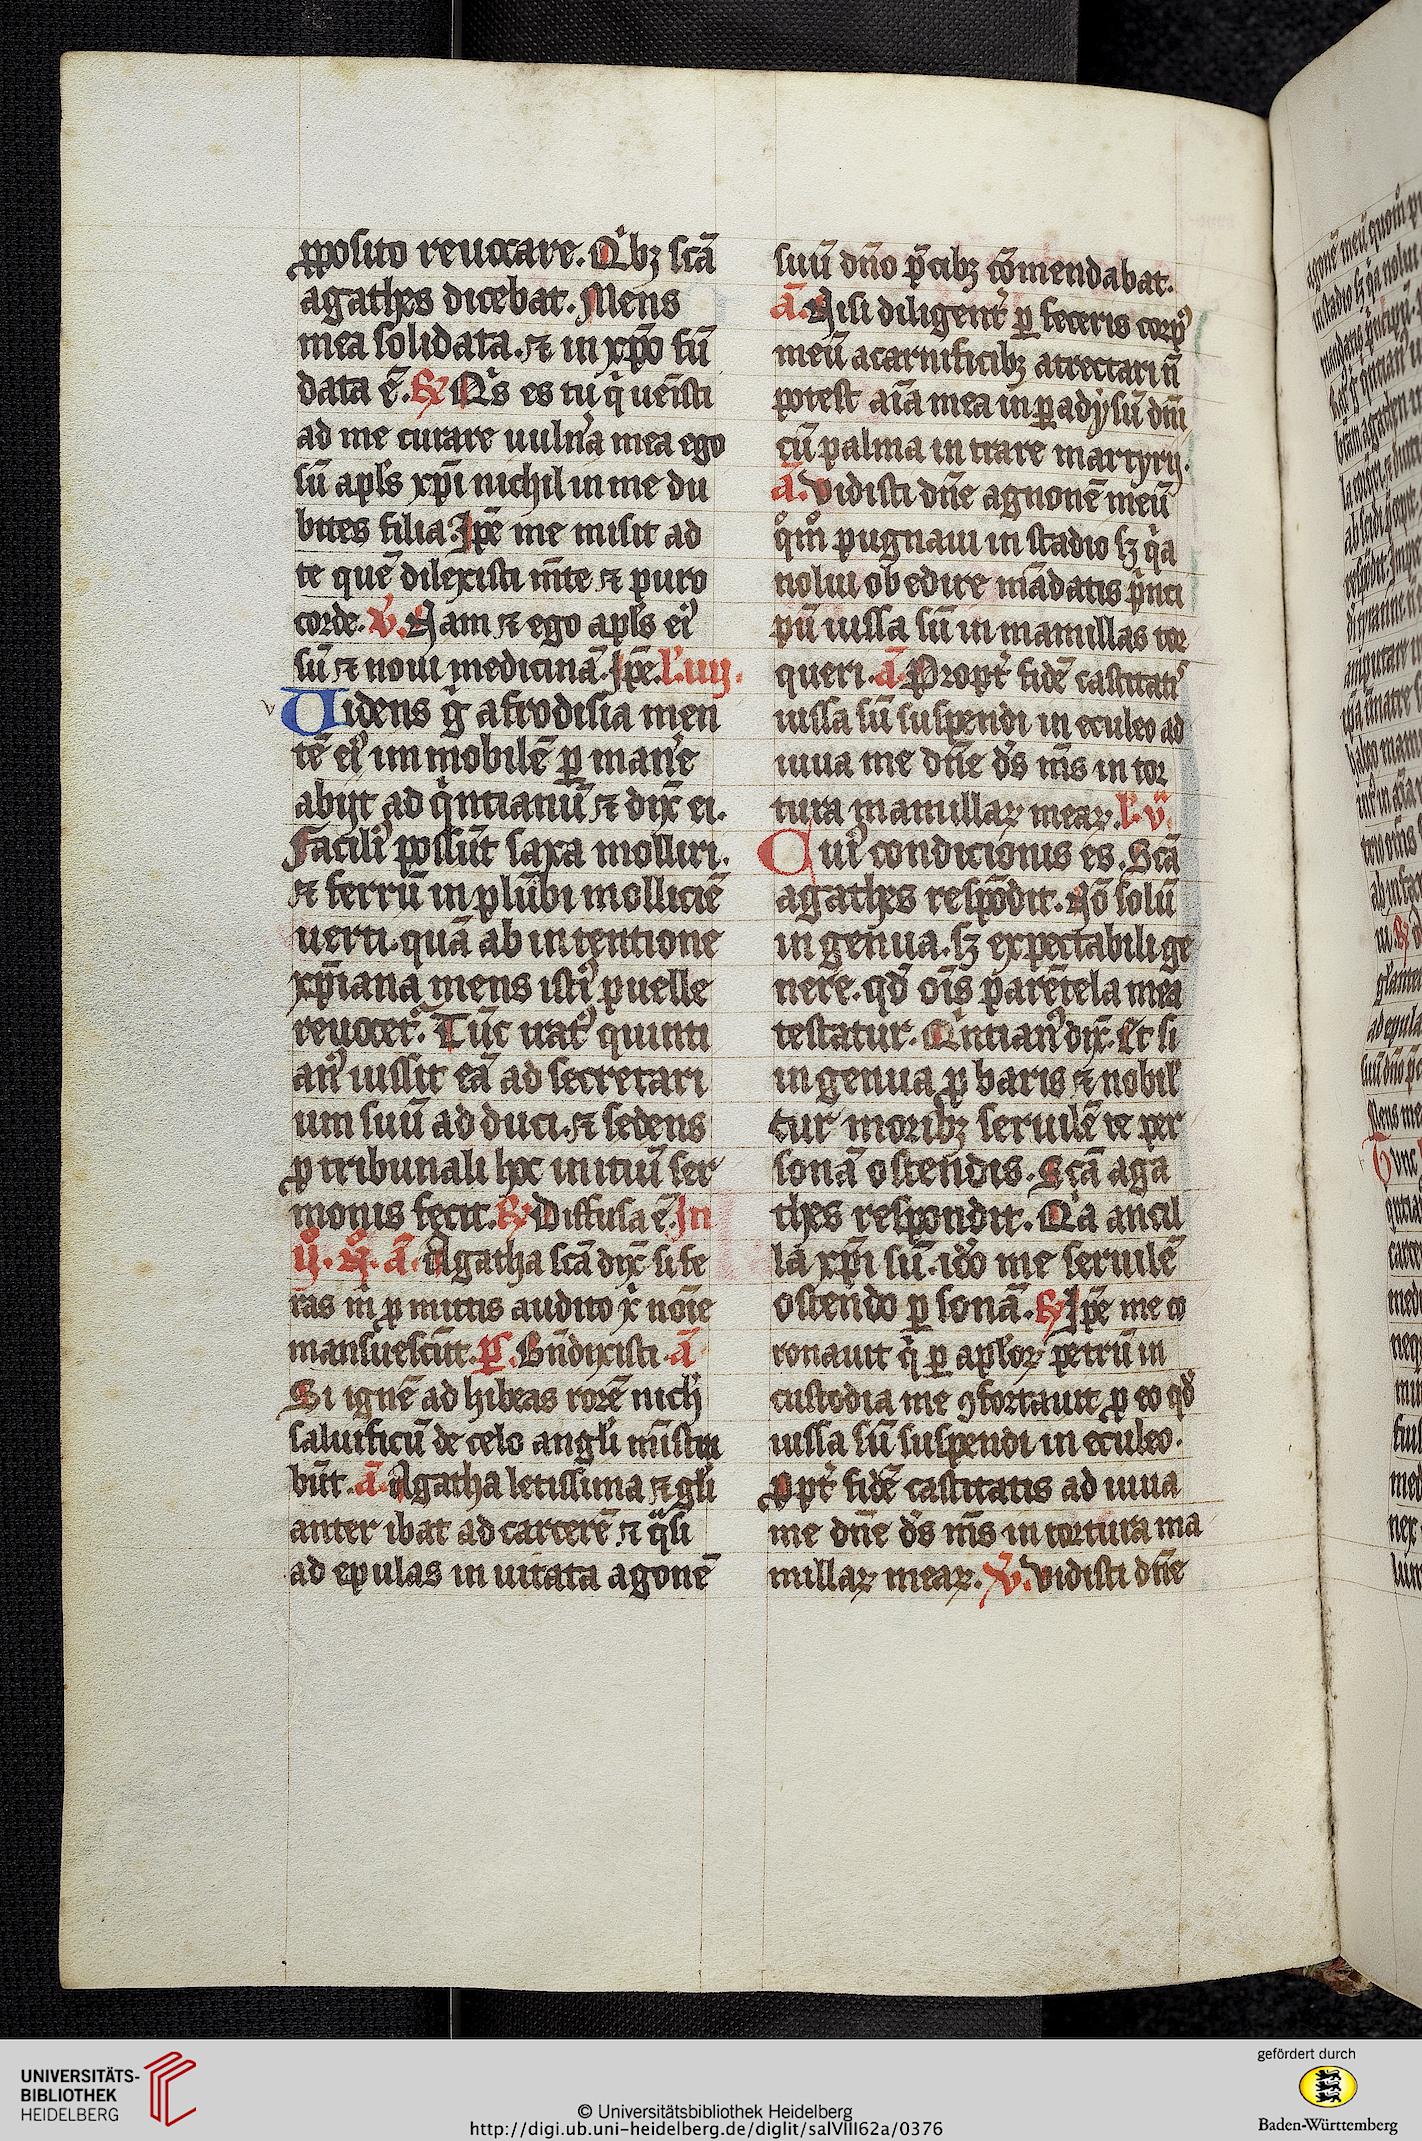 ꝓposito reuocare. Qͥbꝫ scā
agathes dicebat. Mens
mea solidata. ⁊ in xp̄o fū
data ē. ℟ Qͥs es tu qͥ uenisti
ad me curare uulnͣa mea ego
sū apl̄s xp̄i nichil in me du
bites filia. Ip̄e me misit ad
te quē dilexisti mēte ⁊ puro
corde. ℣. Nam ⁊ ego apl̄s eiꝰ
sū ⁊ noui medicinā. Ip̄e. L. iiij.
Uidens gͦ afrodisia men
tē eiꝰ im mobilē ꝑ manē
abijt ad qͥntianū ⁊ dix̄ ei.
Faciliꝰ possūt saxa molliri.
⁊ ferrū in plūbi molliciē
uerti. quā ab intentione
xp̄iana mens istiꝰ puelle
reuocet. Tūc iratꝰ quinti
anꝰ iussit eā ad secretari
um suū ad duci. ⁊ sedens
ꝓ tribunali hoc initiū ser
monis fecit. ℟ Diffusa ē. In
ij. ā. Agatha scā dix̄ si fe
ras m̄ ꝓ mittis audito x̄ noīe
mansuescūt. p̄s. Bn̄dixisti. ā
Si ignē ad hibeas rorē nichͥ
saluificū de celo angl̄i mīstra
būt. ā. Agatha letissima ⁊ gl̄i
anter ibat ad carcerē ⁊ qͣsi
ad epulas in uitata agonē
suū dn̄o p̄cibꝫ cōmendabat.
ā. Nisi diligentͥ ꝑ feceris corpꝰ
meū a carnificibꝫ atrectari n̄
potest aīa mea in ꝑadysū dn̄i
cū palma in trare martyrij.
ā. Vidisti dn̄e agnonē meū
qͦmͦ pugnaui in stadio sꝫ qͥa
nolui ob edire mādatis pͥnci
pū iussa sū in mamillas tor
queri. ā. Proptͥ fidē castitatꝭ
iussa sū suspendi in eculeo ad
iuua me dn̄e dꝰs mꝰs in tor
tura mamillaꝝ meaꝝ. L. v̄.
Cuiꝰ condicionis es. Scā
agathes respōdit. Nō solū
in genua. sꝫ expectabili ge
nere. qd̄ oīs parētela mea
testatur. Qͥntianꝰ dix̄. Et si
in genua ꝓ baris ⁊ nobil
tur moribꝫ seruilē te per
sonā ostendis. Scā aga
thes respondit. Qͥa ancil
la xp̄i sū. iđo me seruilē
ostendo ꝑ sonā. ℟ Ip̄e me co
ronauit qͥ ꝑ aplōꝝ petrū in
custodia me ꝯfortauit ꝓ eo qđ
iussa sū suspendi in eculeo.
ꝓptͥ fidē castitatis ad iuua
me dn̄e dꝰs mꝰs in tortura ma
millaꝝ meaꝝ. ℣. Vidisti dn̄e
UNIVERSITÄTS-
BIBLIOTHEK
HEIDELBERG
© Universitätsbibliothek Heidelberg
http://digi.ub.uni-heidelberg.de/diglit/salVIII62a/0376
gefördert durch
Baden-Württemberg